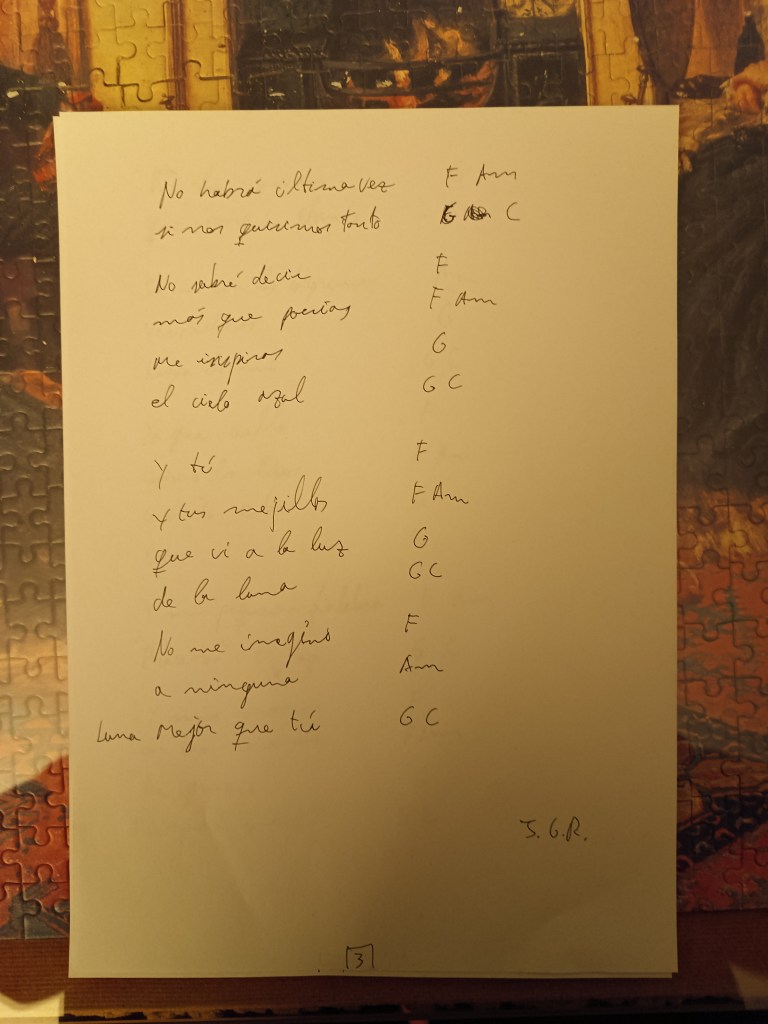 No habrá última vez F Am
si nos quisimos tanto G C
No sabré decir F
más que poesías F Am
me inspiras G
el cielo azul G C
Y tú F
y tus mejillas F Am
que vi a la luz G
de la luna G C
No me imagino F
a ninguna Am
Luna Mejor que tú G C
J.G.R.
3